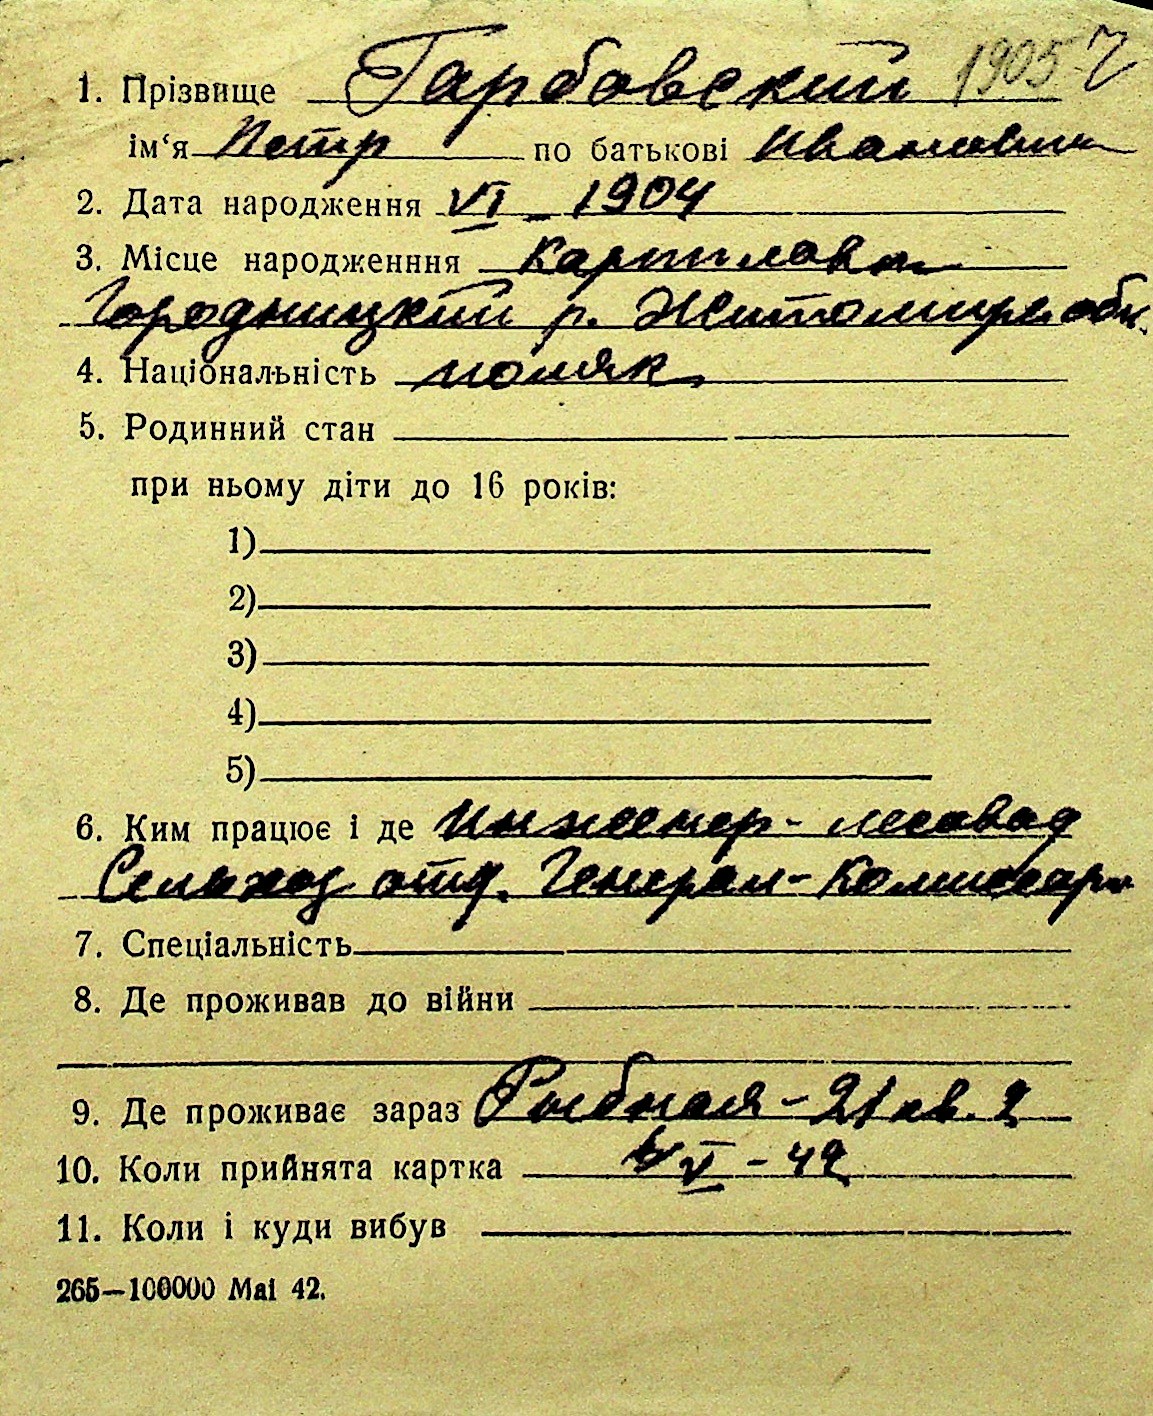 1. Прізвище Гарбовский 1905
ім‘я Петр по батькові Иванович
2. Дата народження VI - 1904
3. Місце народженння
Городницкий р. Житомирс. обл.
4. Національність поляк
5. Родинний стан
при ньому діти до 16 років:
1)
2)
3)
4)
5)
6. Ким працює і де Инженер - лесовод
Сельхоз отд. Генерал-Комиссари
7. Спеціальність
8. Де проживав до війни
9. Де проживає зараз Рыбная - 21 кв. 2
10. Коли прийнята картка V - 42
11. Коли і куди вибув
265—100000 Mai 42.